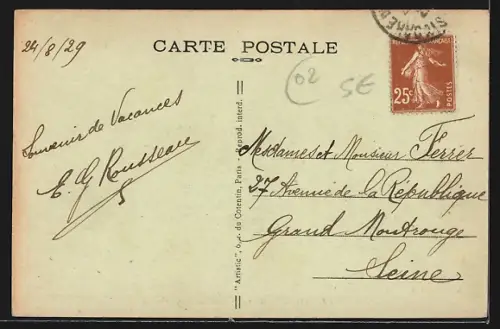 24/8/29
CARTE POSTALE
02
5E
25c
POSTES
Souvenir de Vacances
E. G Rousseau
"Artistic", r. du Cotentin, Paris - Reprod. interd.
Mesdames et Monsieur Ferrer
27 Avenue de la République
Grand Montrouge
Seine